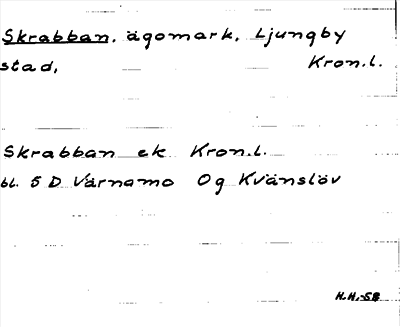 Skrabban, ägomark, Ljungby
stad, Kron.l.
Skrabban ek Kron.l.
bl. 5 D Värnamo Og Kvänslöv
H.H.-58